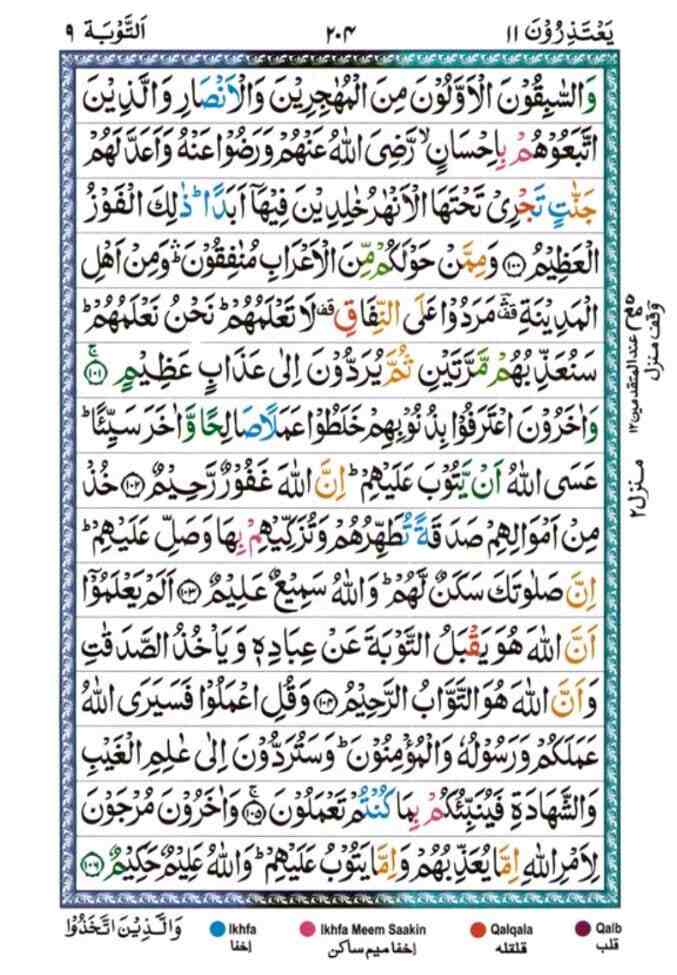 يَعْتَذِرُوْنَ ۱۱
۲۰۴
اَلتَّوْبَة ۹
وَالسّٰبِقُوْنَ الْاَوَّلُوْنَ مِنَ الْمُهٰجِرِيْنَ وَالْاَنْصَارِ وَالَّذِيْنَ
اتَّبَعُوْهُمْ بِاِحْسَانٍ ۙ رَّضِیَ اللّٰهُ عَنْهُمْ وَرَضُوْا عَنْهُ وَاَعَدَّ لَهُمْ
جَنّٰتٍ تَجْرِیْ تَحْتَهَا الْاَنْهٰرُ خٰلِدِيْنَ فِيْهَاۤ اَبَدًا ؕ ذٰلِكَ الْفَوْزُ
الْعَظِيْمُ ۝۱۰۰ وَمِمَّنْ حَوْلَكُمْ مِّنَ الْاَعْرَابِ مُنٰفِقُوْنَ ۛؕ وَمِنْ اَهْلِ
الْمَدِيْنَةِ ؔۛ قف مَرَدُوْا عَلَی النِّفَاقِ قف لَا تَعْلَمُهُمْ ؕ نَحْنُ نَعْلَمُهُمْ ؕ
سَنُعَذِّبُهُمْ مَّرَّتَيْنِ ثُمَّ يُرَدُّوْنَ اِلٰی عَذَابٍ عَظِيْمٍ ۝۱۰۱ۚ
وَاٰخَرُوْنَ اعْتَرَفُوْا بِذُنُوْبِهِمْ خَلَطُوْا عَمَلًا صَالِحًا وَّاٰخَرَ سَيِّئًا ؕ
عَسَی اللّٰهُ اَنْ يَّتُوْبَ عَلَيْهِمْ ؕ اِنَّ اللّٰهَ غَفُوْرٌ رَّحِيْمٌ ۝۱۰۲ خُذْ
مِنْ اَمْوَالِهِمْ صَدَقَةً تُطَهِّرُهُمْ وَتُزَكِّيْهِمْ بِهَا وَصَلِّ عَلَيْهِمْ ؕ
اِنَّ صَلٰوتَكَ سَكَنٌ لَّهُمْ ؕ وَاللّٰهُ سَمِيْعٌ عَلِيْمٌ ۝۱۰۳ اَلَمْ يَعْلَمُوْۤا
اَنَّ اللّٰهَ هُوَ يَقْبَلُ التَّوْبَةَ عَنْ عِبَادِهٖ وَيَاْخُذُ الصَّدَقٰتِ
وَاَنَّ اللّٰهَ هُوَ التَّوَّابُ الرَّحِيْمُ ۝۱۰۴ وَقُلِ اعْمَلُوْا فَسَيَرَی اللّٰهُ
عَمَلَكُمْ وَرَسُوْلُهٗ وَالْمُؤْمِنُوْنَ ؕ وَسَتُرَدُّوْنَ اِلٰی عٰلِمِ الْغَيْبِ
وَالشَّهَادَةِ فَيُنَبِّئُكُمْ بِمَا كُنْتُمْ تَعْمَلُوْنَ ۝۱۰۵ۚ وَاٰخَرُوْنَ مُرْجَوْنَ
لِاَمْرِ اللّٰهِ اِمَّا يُعَذِّبُهُمْ وَاِمَّا يَتُوْبُ عَلَيْهِمْ ؕ وَاللّٰهُ عَلِيْمٌ حَكِيْمٌ ۝۱۰۶
وقف منزل
عند المتقدمين ۱۲
منزل ۲
وَالَّذِيْنَ اتَّخَذُوْا
Ikhfa
إخفا
Ikhfa Meem Saakin
إخفا ميم ساكن
Qalqala
قلقله
Qalb
قلب